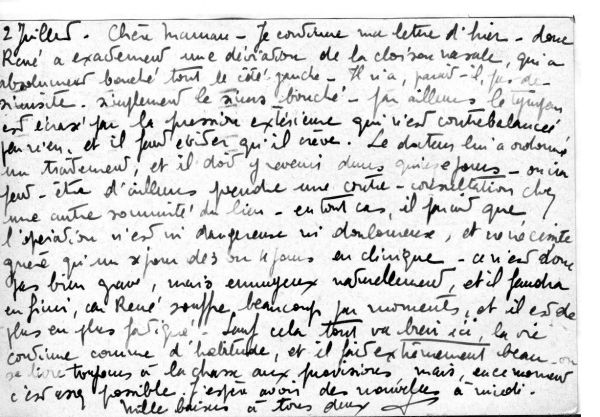 2 Juillet. Chère Maman - Je continue ma lettre d'hier - donc
René a exactement une déviation de la cloison nasale, qui a
absolument bouché tout le côté gauche - Il n'a, paraît-il, pas de
sinusite. simplement le sinus bouché - par ailleurs le tympan
est écrasé par la pression extérieure qui n'est contrebalancée
par rien, et il faut éviter qu'il crève. Le docteur lui a ordonné
un traitement, et il doit y revenir dans quinze jours - on ira
peut-être d'ailleurs prendre une contre-consultation chez
une autre sommité du lieu - en tout cas, il paraît que
l'opération n'est ni dangereuse ni douloureuse, et ne nécessite
guère qu'un séjour de 3 ou 4 jours en clinique - ce n'est donc
pas bien grave, mais ennuyeux naturellement, et il faudra
en finir, car René souffre beaucoup par moments, et il est de
plus en plus fatigué. Sauf cela tout va bien ici, la vie
continue comme d'habitude, et il fait extrêmement beau - on
se livre toujours à la chasse aux provisions mais, en ce moment
c'est assez possible. J'espère avoir des nouvelles à midi.
Mille baisers à tous deux